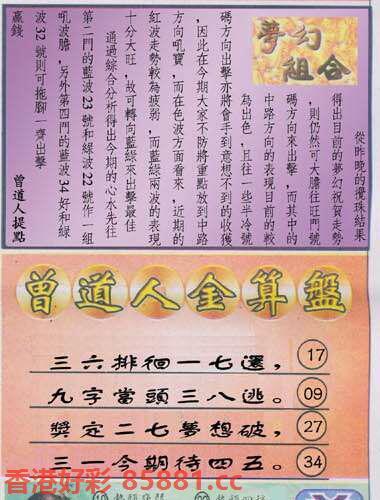 夢幻
組合
從昨晚的攪珠結果
得出目前的夢幻祝賀走勢
，則仍然可大膽往旺門號
碼方向來出擊，而其中的
中路方向的表現目前的較
為出色，且往一些半冷號
碼方向出擊亦將會手到意想不到的收獲
，因此在今期大家不防將重點放到中路
方向吼寶，而在色波方面看來，近期的
紅波走勢較為疲弱，而藍綠兩波的表現
十分大旺，故可轉向藍綠來出擊最佳
通過綜合分析得出今期的心水先往
第二門的藍波 23 號和綠波 22 號作一組
吼波膽，另外第四門的藍波 34 好和綠
波 32 號則可拖腳一齊出擊
贏錢 曾道人提點
曾道人金算盤
三六排徊一七選， 17
九字當頭三八逃。 09
獎定二七夢想破， 27
三一今期待四五。 34
香港好彩 85881.cc